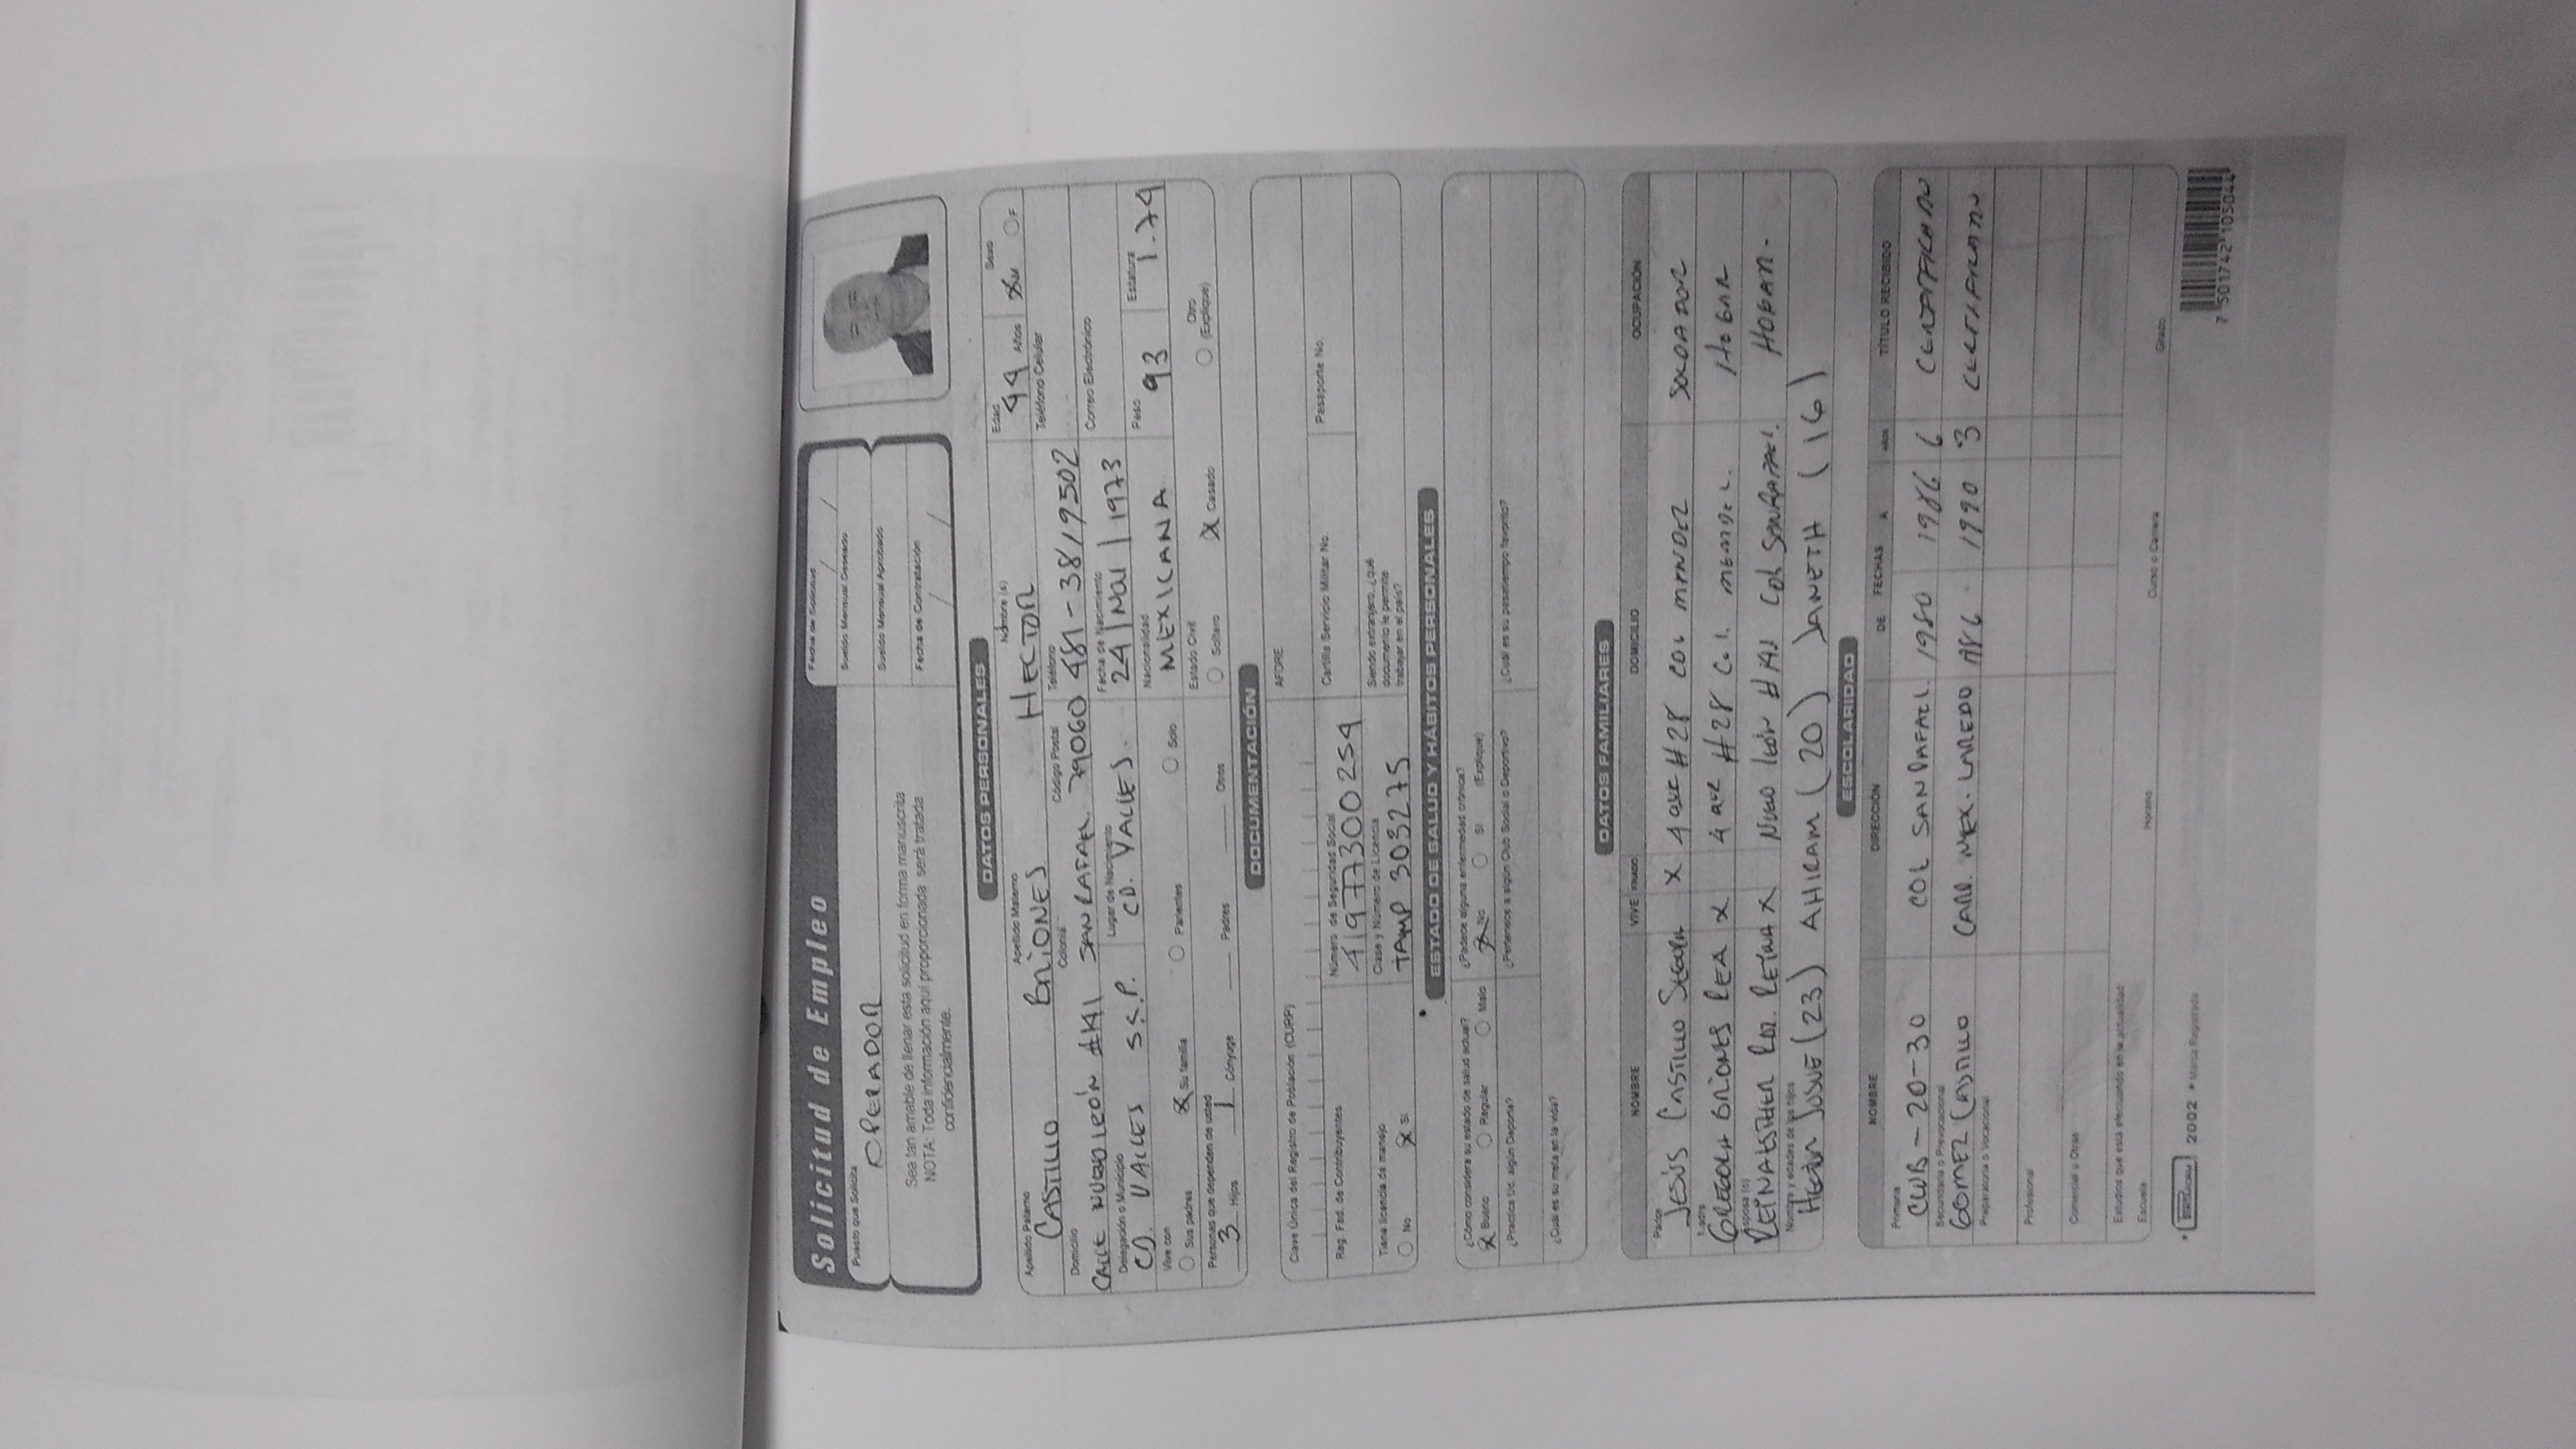 Solicitud de Empleo
Fecha de Solicitud / /
Puesto que Solicita
OPERADOR
Sueldo Mensual Deseado
Sueldo Mensual Aprobado
Sea tan amable de llenar esta solicitud en forma manuscrita
NOTA: Toda información aquí proporcionada será tratada
confidencialmente.
Fecha de Contratación / /
DATOS PERSONALES
Apellido Paterno Apellido Materno Nombre (s) Edad Sexo
CASTILLO BRIONES HECTOR 44 Años M F
Domicilio Colonia Código Postal Teléfono Teléfono Celular
CALLE NUEVO LEÓN #141 SAN RAFAEL 79060 481-3819502
Delegación o Municipio Lugar de Nacimiento Fecha de Nacimiento Correo Electrónico
CD. VALLES S.L.P. CD. VALLES. 24 | NOV | 1973
Vive con Nacionalidad Peso Estatura
Sus padres X Su familia Parientes Solo MEXICANA 93 1.74
Personas que dependen de usted Estado Civil
3 Hijos 1 Cónyuge Padres Otros Soltero X Casado Otro (Explique)
DOCUMENTACIÓN
Clave Única del Registro de Población (CURP) AFORE
Reg. Fed. de Contribuyentes Número de Seguridad Social Cartilla Servicio Militar No. Pasaporte No.
41977300254
Tiene licencia de manejo Clase y Número de Licencia Siendo extranjero, ¿qué
No X Si TAMP 303275 documento le permite
trabajar en el país?
ESTADO DE SALUD Y HÁBITOS PERSONALES
¿Cómo considera su estado de salud actual? ¿Padece alguna enfermedad crónica?
X Bueno Regular Malo X No Si (Explique)
¿Practica Ud. algún Deporte? ¿Pertenece a algún Club Social o Deportivo? ¿Cuál es su pasatiempo favorito?
¿Cuál es su meta en la vida?
DATOS FAMILIARES
NOMBRE VIVE FINADO DOMICILIO OCUPACIÓN
Padre
JESÚS CASTILLO X #28 COL
Madre
GREGORIA BRIONES REA X #28 HOGAR
Esposa (o)
X NUEVO LEÓN #141 COL SAN RAFAEL. HOGAR.
Nombre y edades de los hijos
JOSUE (23) AHIRAM (20) JANETH (16)
ESCOLARIDAD
NOMBRE DIRECCIÓN DE FECHAS A AÑOS TÍTULO RECIBIDO
Primaria
20-30 COL SAN RAFAEL. 1980 1986 6 CERTIFICADO
Secundaria o Prevocacional
GOMEZ CASTILLO CARR. MEX. LAREDO 1986 1990 3 CERTIFICADO
Preparatoria o Vocacional
Profesional
Comercial u Otras
Estudios que está efectuando en la actualidad:
Escuela Horario Curso o Carrera Grado
2002 * Marca Registrada
7 501742 105044